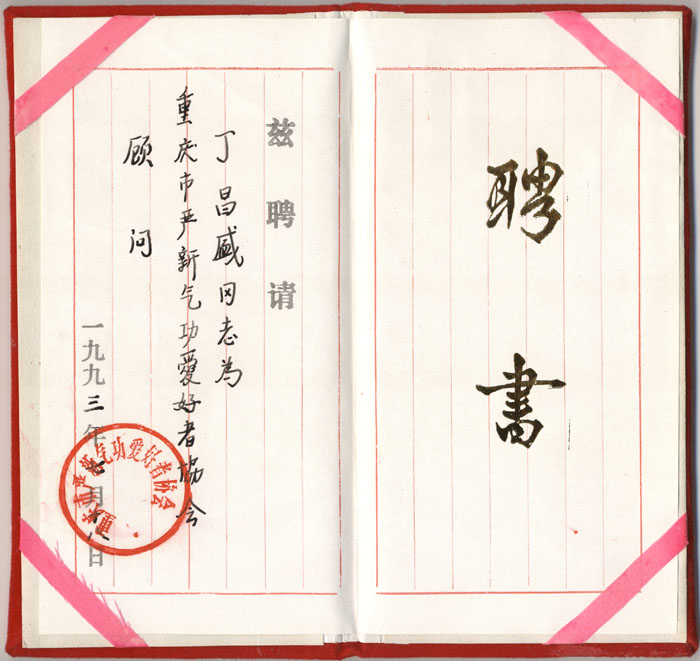 聘書
兹聘请
丁昌盛同志為
重庆市严新气功爱好者协会
顾问
一九九三年六月十八日
重庆市严新气功爱好者协会